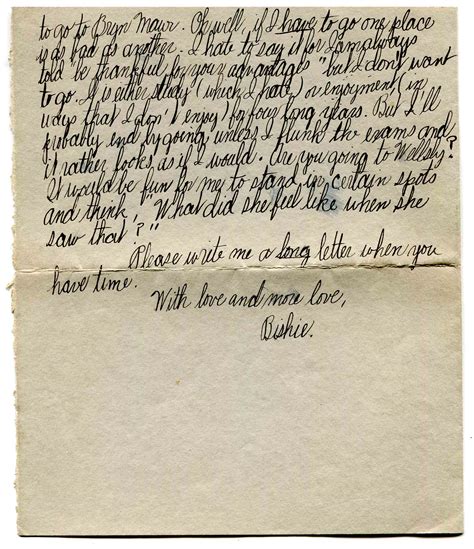 to go to Bryn Mawr. Oh well, if I have to go one place
is as bad as another. I hate to say it for I am always
told be thankful for your advantages" but I don't want
to go. It is either study (which I hate) or enjoyment (in
ways that I don't enjoy) for four long years. But I'll
probably end by going unless I flunk the exams and
it rather looks as if I would. Are you going to Wellsly?
It would be fun for me to stand in certain spots
and think, "What did she feel like when she
saw that?"
Please write me a long letter when you
have time.
With love and more love,
Bishie.